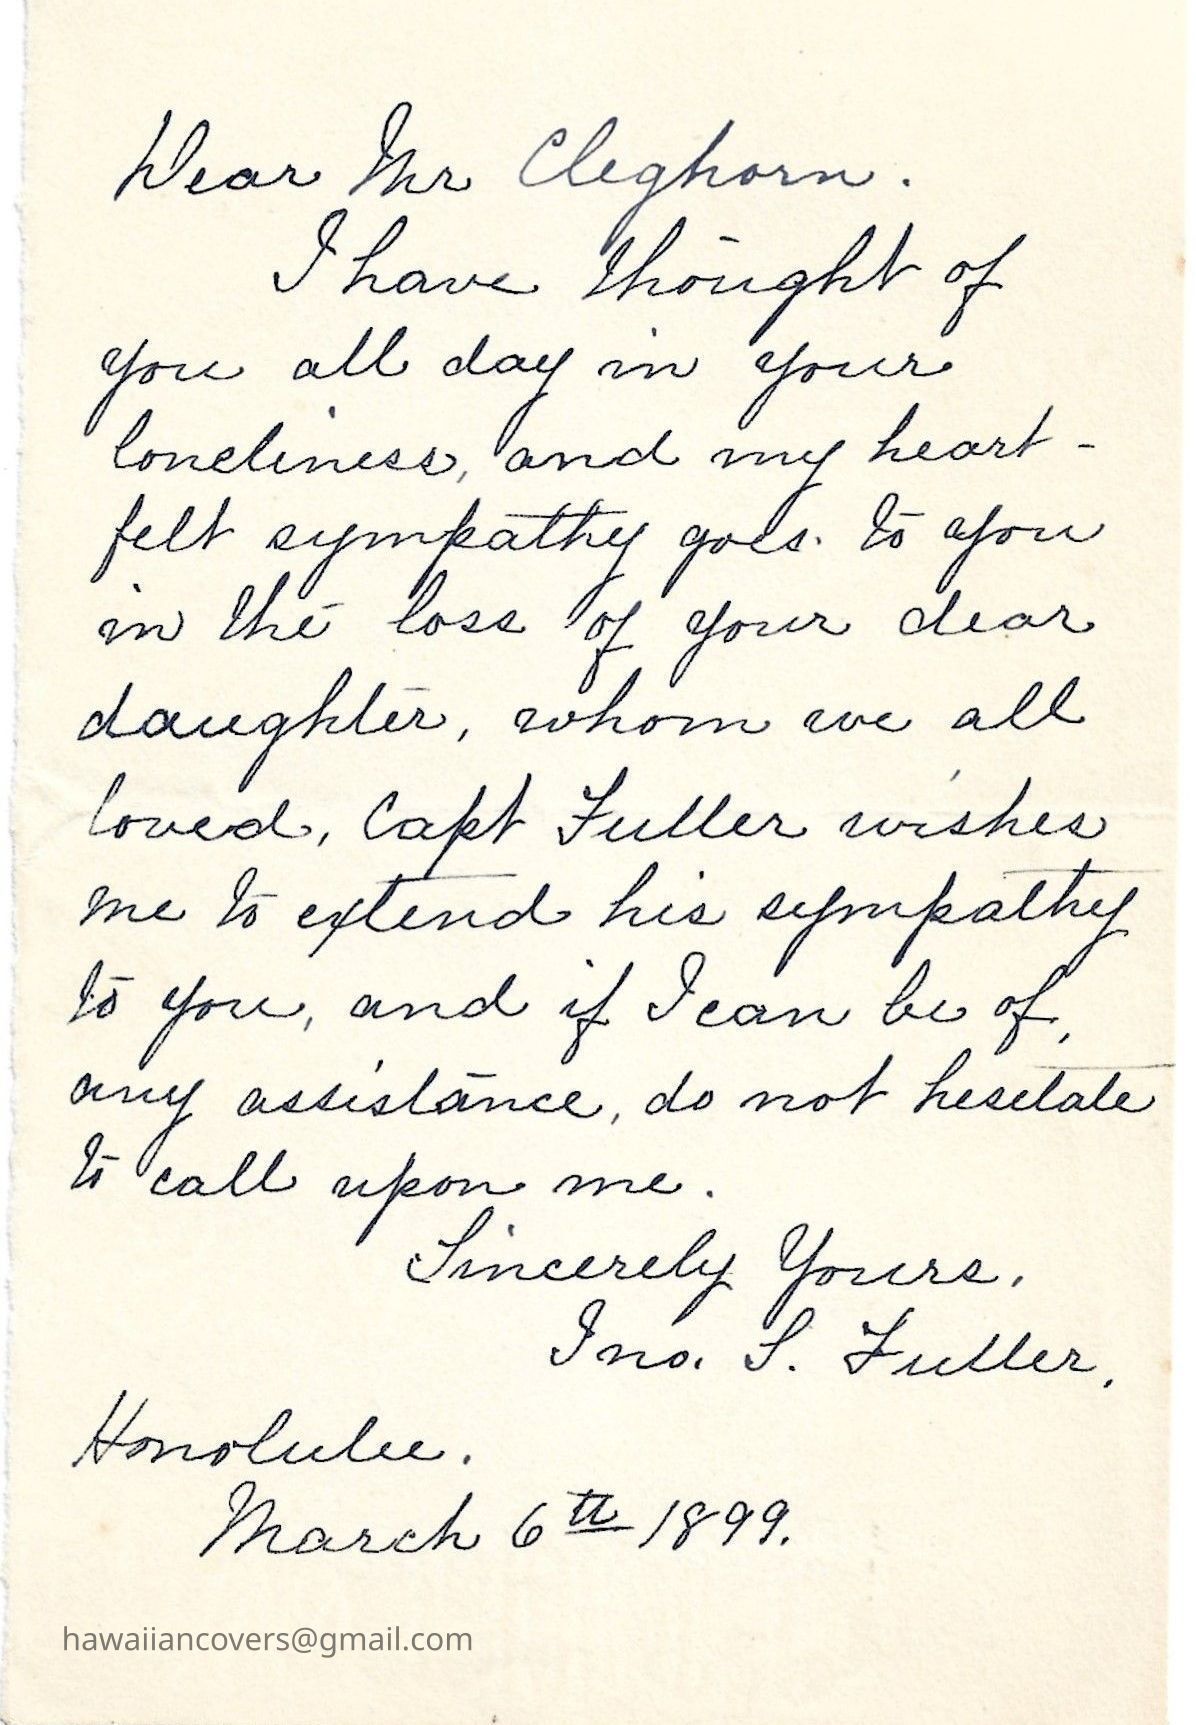 Dear Mr Cleghorn.
I have thought of
you all day in your
loneliness, and my heart-
felt sympathy goes to you
in the loss of your dear
daughter, whom we all
loved, Capt Fuller wishes
me to extend his sympathy
to you, and if I can be of,
any assistance, do not hesitate
to call upon me.
Sincerely Yours.
Jno. S. Fuller,
Honolulu.
March 6th 1899.
hawaiiancovers@gmail.com